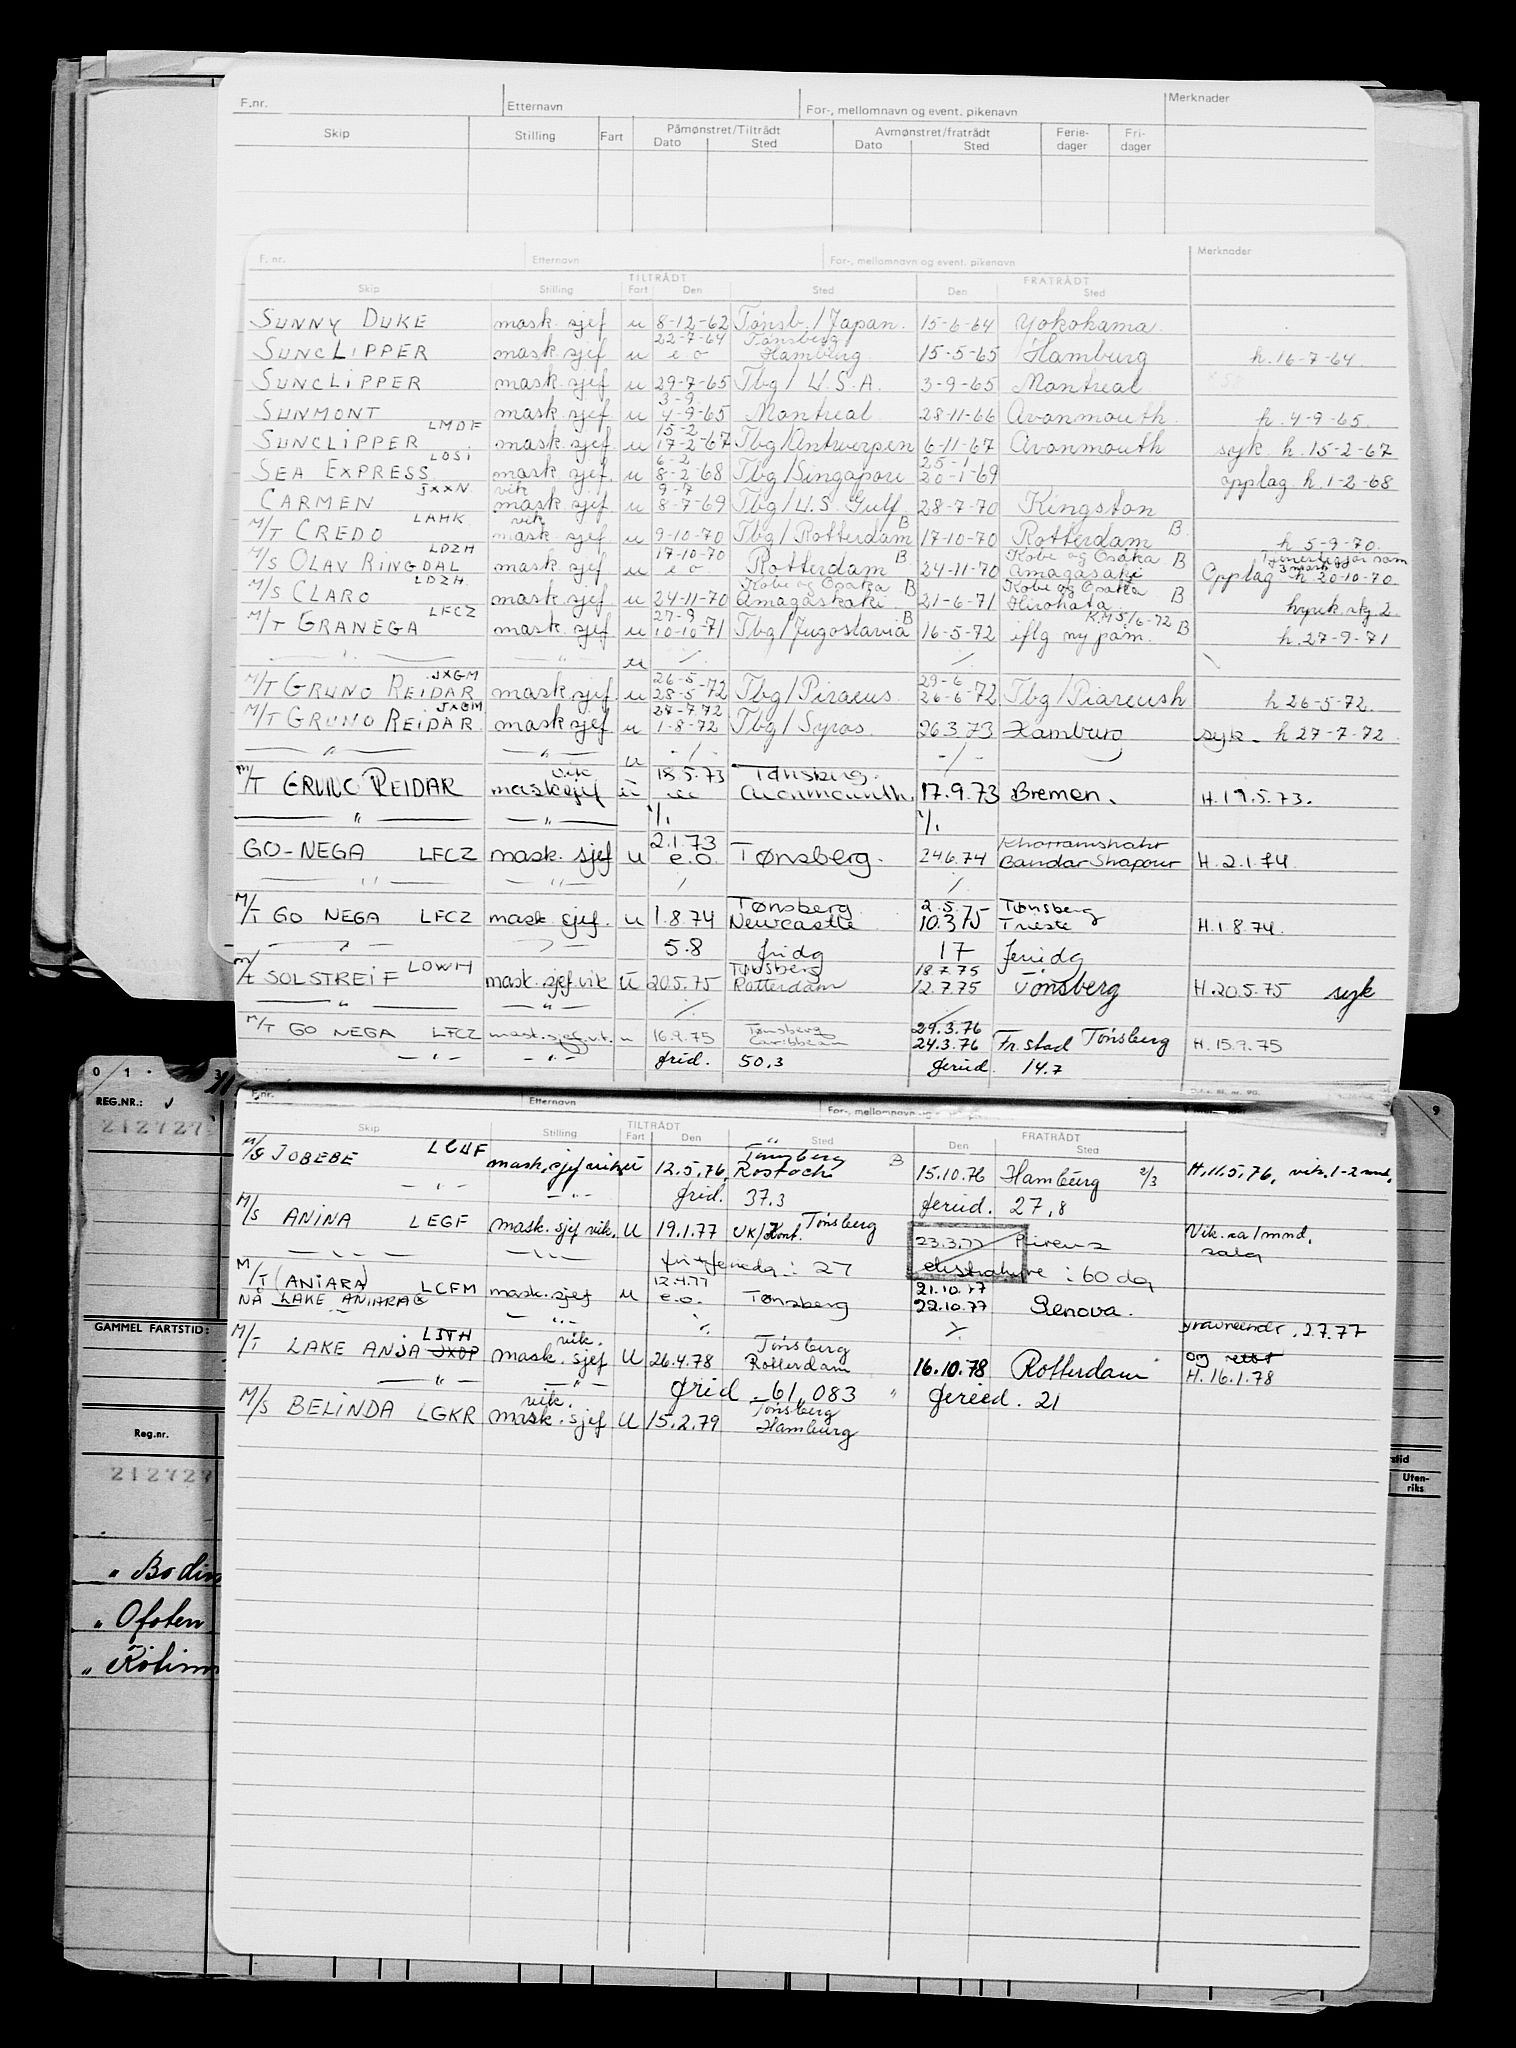 F.nr. Etternavn For-, mellomnavn og event. pikenavn Merknader
Skip Stilling Fart Påmønstret/Tiltrådt Avmønstret/fratrådt Ferie-dager Fri-dager
Dato Sted Dato Sted
F. nr. Etternavn For-, mellomnavn og event. pikenavn Merknader
TILTRÅDT FRATRÅDT
Skip Stilling Fart Den Sted Den Sted
SUNNY DUKE mask. sjef u 8-12-62 Tønsb./Japan. 15-6-64 Yokohama
22-7-64 Tønsberg
SUNCLIPPER mask. sjef u e o Hamburg 15-5-65 Hamburg h. 16-7-64.
SUNCLIPPER mask. sjef u 29-7-65 Tbg/ U.S.A. 3-9-65 Montreal
3-9.
SUNMONT mask. sjef u 4-9-65 Montreal 28-11-66 Avonmouth. h. 4-9-65.
LMDF 15-2
SUNCLIPPER mask. sjef. u 17-2-67 Tbg/Antwerpen 6-11-67 Avonmouth syk. h. 15-2-67
LOSI 6-2 25-1
SEA EXPRESS mask. sjef. u 8-2-68 Tbg/Singapore 20-1-69 opplag h. 1-2-68
JXXN vik 9-7
CARMEN mask. sjef u 8-7-69 Tbg/U.S. Gulf 28-7-70 Kingston
LAHK vik B
M/T CREDO mask. sjef u 9-10-70 Tbg/Rotterdam 17-10-70 Rotterdam B h 5-9-70.
LDZH 17-10-70 B Kobe og Osaka B
M/S OLAV RINGDAL mask. sjef u e o Rotterdam 24-11-70 Amagasaki Opplag h 20-10-70
LDZH Kobe og Osaka B Kobe og Osaka B
M/S CLARO mask. sjef u 24-11-70 Amagaskaki 21-6-71 Hirohata
LFCZ 27-9 B
M/T GRANEGA mask. sjef u 10-10-71 Tbg/Jugoslavia 16-5-72 iflg ny påm. B h. 27-9-71
u
JXGM 26-5 29-6
M/T GRUNO REIDAR mask. sjef. u 28-5-72 Tbg/Piraeus 26-6-72 Tbg/Piareush h 26-5-72.
JXGM 27-7-72
M/T GRUNO REIDAR. mask sjef u 1-8-72 Tbg/Syros. 26.3.73 Hamburg syk. h 27-7-72.
u
vik 18.5.73 Tønsberg.
M/T GRUNO REIDAR masksjef u Avonmouth. 17.9.73 Bremen. H. 19.5.73.
2.1.73 Khorramshahr
GO-NEGA LFCZ mask. sjef u e.o. Tønsberg. 24.6.74 Bandar Shapour H. 2.1.74.
Tønsberg 2.5.75 Tønsberg
M/T GO NEGA LFCZ mask sjef. u 1.8.74 Newcastle 10.3.75 Trieste H. 1.8.74.
5.8 fridg 17 feridg
LOWH Tønsberg 18.7.75
M/T SOLSTREIF mask. sjef vik U 20.5.75 Rotterdam 12.7.75 Tønsberg H. 20.5.75 syk
Tønsberg 29.3.76
M/T GO NEGA LFCZ mask. sjef. u 16.9.75 Caribbean 24.3.76 Fr.stad Tönsberg H. 15.9.75
frid. 50,3 ferid. 14.7
01
REG.NR.:
212727
F.nr. Etternavn For-, mellomnavn og
TILTRÅDT FRATRÅDT
Skip Stilling Fart Den Sted Den Sted
Tönsberg
M/S JOBEBE mask. sjef vik u 12.5.76, Rostock B 15.10.76 Hamburg 2/3 H. 11.5.76, vik. 1-2 mnd.
frid. 37.3 ferid. 27,8
M/S ANINA LEGF mask. sjef vik. U 19.1.77 UK/Kont. Tönsberg 23.3.77 Vik. ca 1 mnd.
27 : 60 dg
M/T (ANIARA) LCFM mask. sjef u 12.4.77 21.10.77
NÅ LAKE ANIARA e.o. Tønsberg 22.10.77 Genova.
2.7.77
GAMMEL FARTSTID:
LJTH vik. Tönsberg
M/T LAKE ANJA JXOP mask. sjef U 26.4.78 Rotterdam 16.10.78 Rotterdam og H. 16.1.78
frid. 61,083 feried. 21
vik. Tönsberg
M/S BELINDA LGKR mask. sjef U 15.2.79 Hamburg
Reg.nr.
212727
Uten-riks
" Bodin
" Ofoten